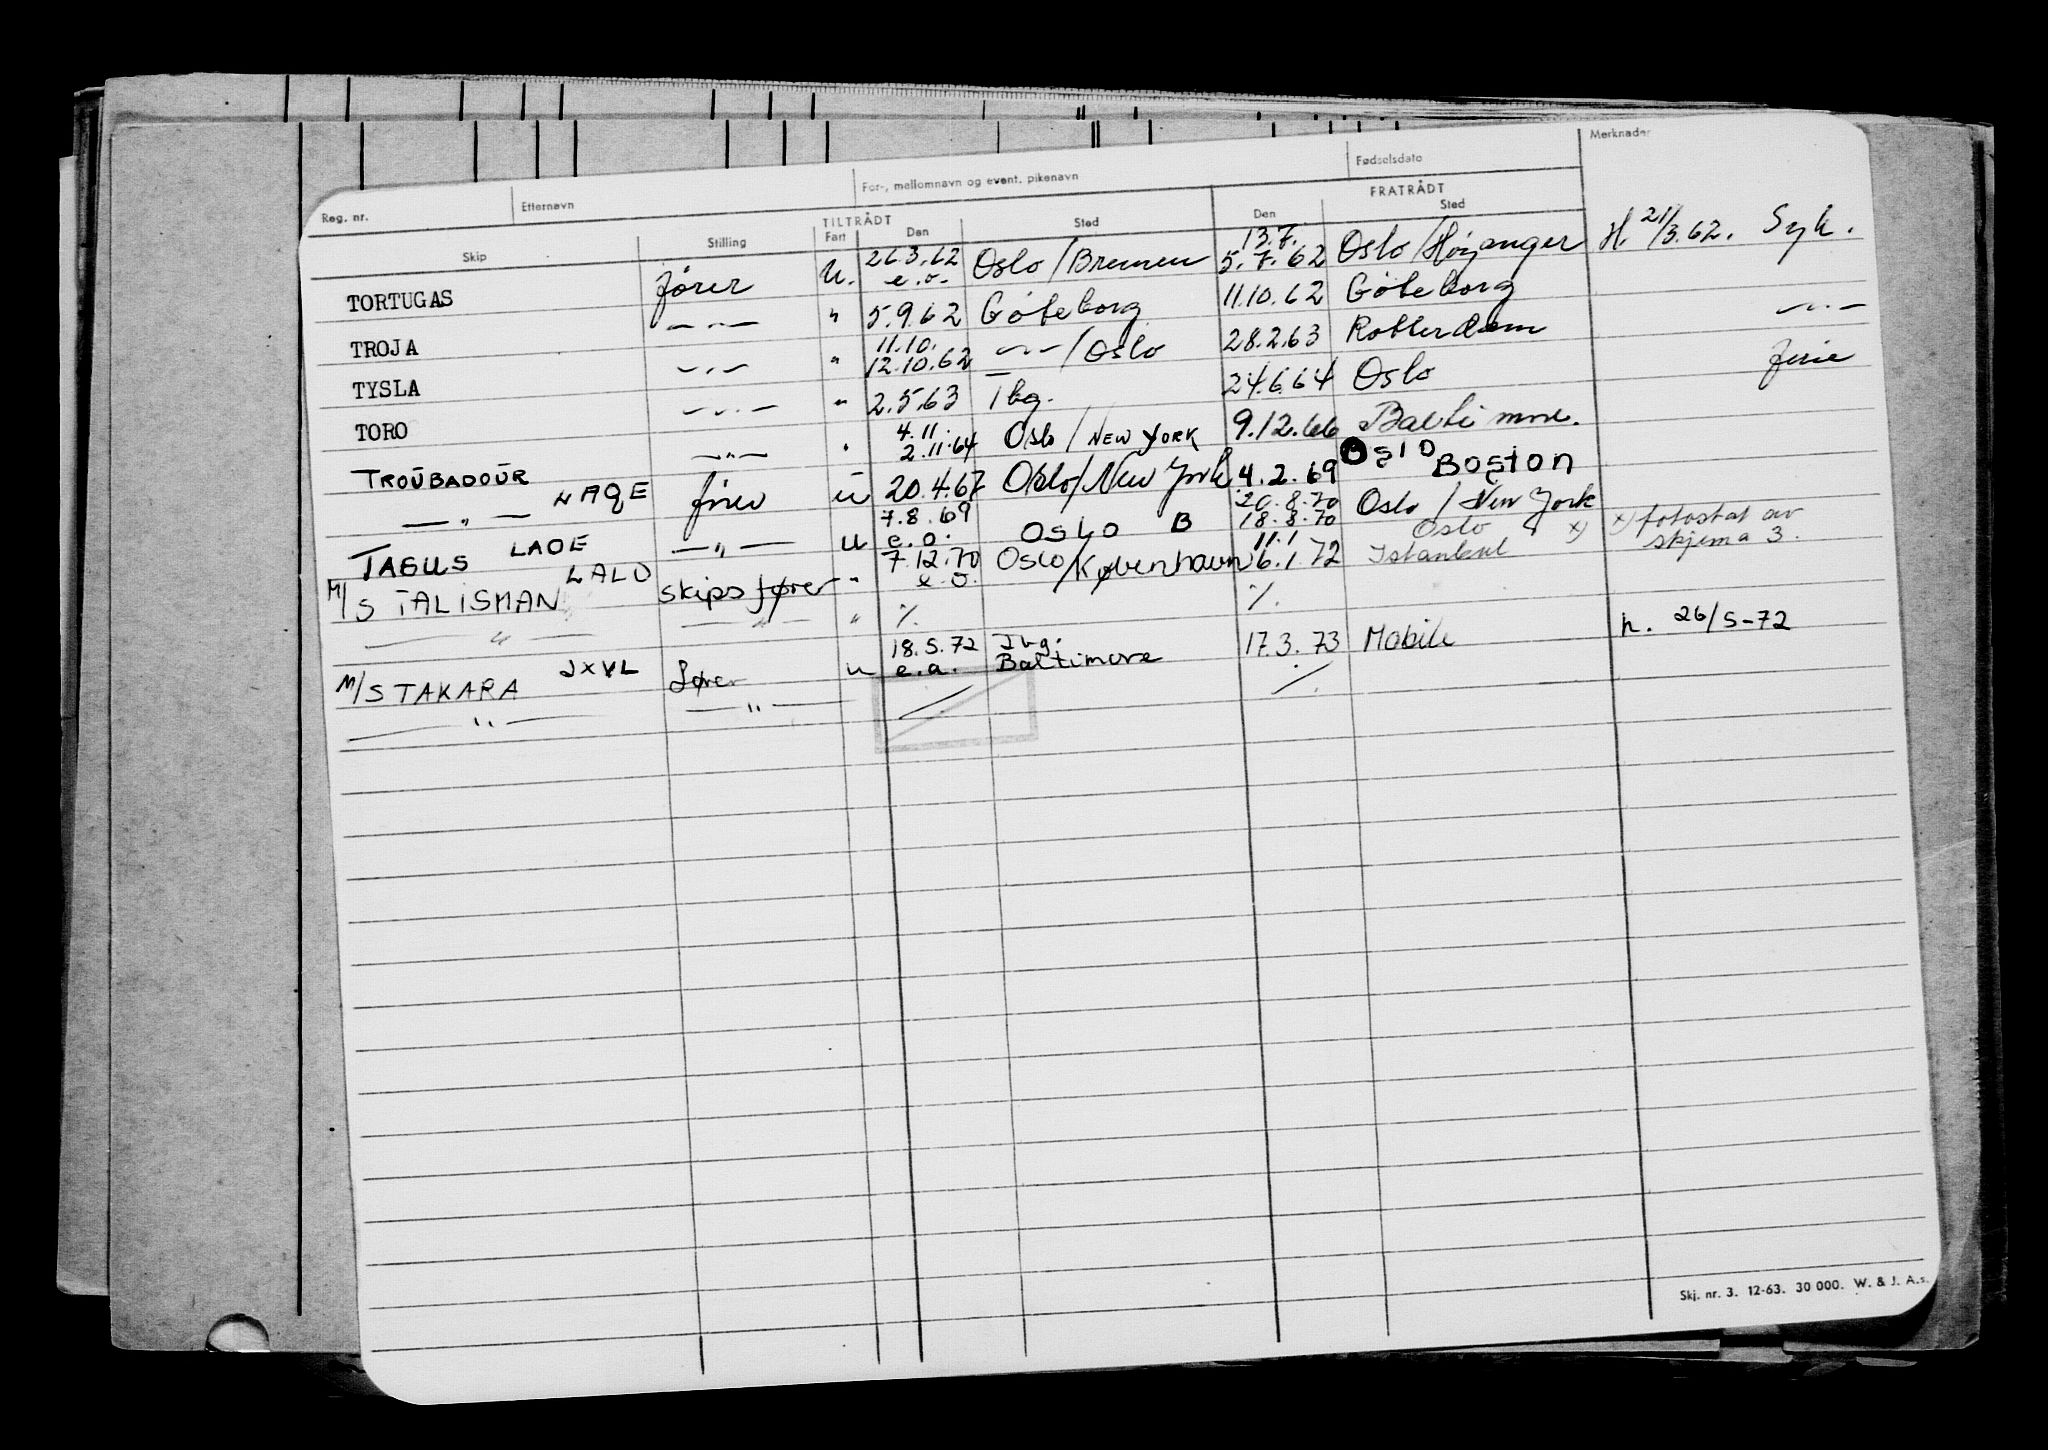 Reg. nr. Etternavn For-, mellomnavn og event. pikenavn Fødselsdato Merknader
TILTRÅDT FRATRÅDT
Skip Stilling Fart Den Sted Den Sted
TORTUGAS fører U. 26.3.62 e.o. Oslo/Bremen 13.7. 5.7.62 Oslo/Høyanger H. 21/3.62. Syk.
TROJA —"— " 5.9.62 Göteborg 11.10.62 Göteborg —"—
TYSLA —"— " 11.10. 12.10.62 —"—/Oslo 28.2.63 Rotterdam ferie
TORO —"— " 2.5.63 Tbg. 24.6.64 Oslo
TROUBADOUR —"— " 4.11. 2.11.64 Oslo/NEW YORK 9.12.66 Baltimore.
—"— LAQE fører u 20.4.67 Oslo/New York 4.2.69 Oslo BOSTON
TAGUS LAOE —"— u 7.8.69 e.o. OSLO B 20.8.70 18.8.70 Oslo/New York
M/S TALISMAN LALU skipsfører " 7.12.70 e.o. Oslo/København 11.1 6.1.72 Oslo Istanbul x) x) fotostat av skjema 3.
—"— —"— " ./. ./.
M/S TAKARA JXVL fører u 18.5.72 e.a. Tbg. Baltimore 17.3.73 Mobile h. 26/5-72
—"— —"— ./.
Skj. nr. 3. 12-63. 30 000. W. & J. A.s.